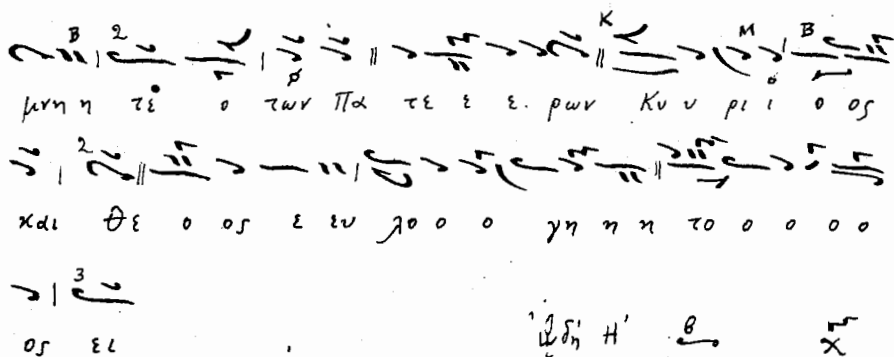 μνη η τε ο των Πα τε ε ε. ρων Κυ υ ρι ι ο ος
και θε ο ος ε ευ λο ο ο γη η η το ο ο ο ο
ος ει
ᾨδή Η'